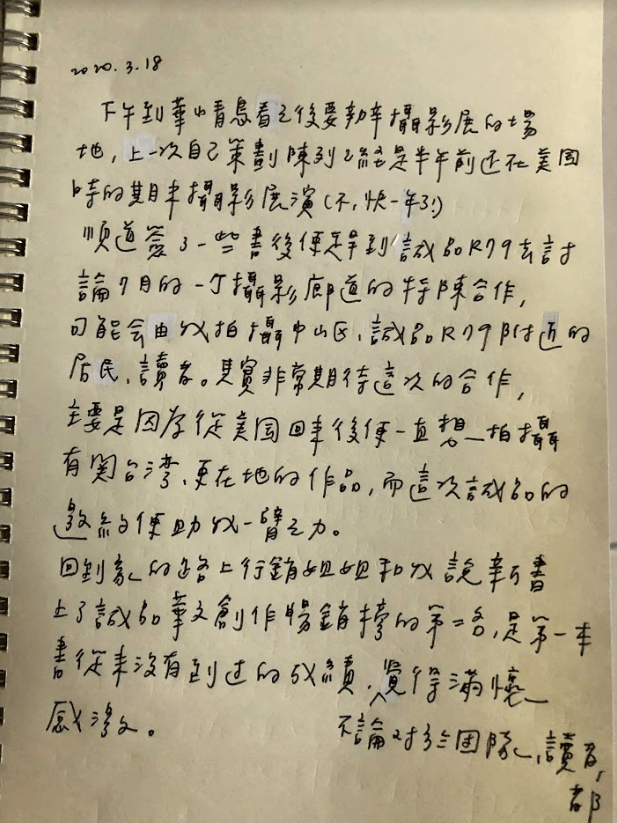 2020.3.18
下午到華山青鳥看之後要辦攝影展的場
地,上一次自己策劃陳列已經是半年前还在美国
時的期末攝影展演(不,快一年3!)
順道簽了一些書後便早到誠品R79去討
論7月的一个攝影廊道的特陳合作,
可能会由我拍攝中山区、誠品R79附近的
居民、讀者。其實非常期待這次的合作,
主要是因為從美国回來後便一直想拍攝
有関台湾、更在地的作品,而這次誠品的
邀約便助我一臂之力。
回到家的路上行銷姐姐和我說新書
上了誠品華文創作暢銷榜的第二名,是第一本
書從來沒有到过的成績,覺得滿懷
感激。
不論対於团隊、讀者,
都